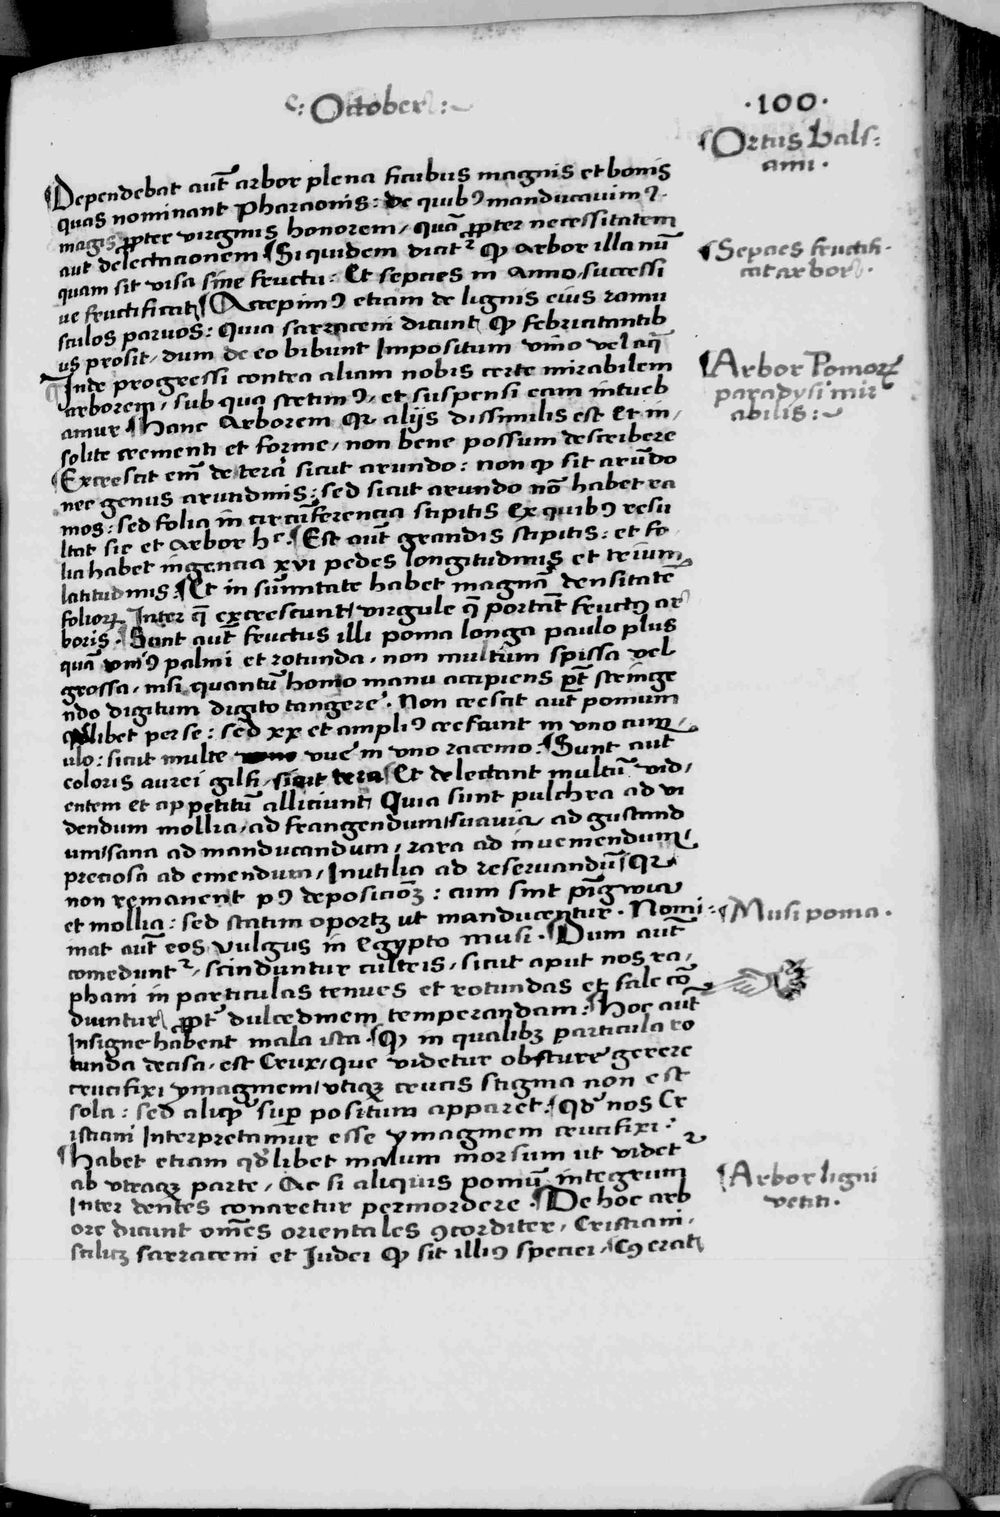 October
·100·
¶Ortus bals:
ami·
¶Dependebat aut̄ arbor plena ficubus magnis et bonis
quas nominant Pharaonis: de quibꝰ manducauimꝰ·
magis ꝓpter virginis honorem, quā ꝓpter necessitatem
aut delectacionem ¶Siquidem dicitᷣ ꝙ arbor illa nū
quam sit visa sine fructu: Et sepcies in Anno successi
ue fructificat ¶Accepimꝰ etiam de lignis eius ramu
sculos paruos: Quia sarraceni dicunt ꝙ febricitantib
us prosit, dum de eo bibunt Impositum vino vel aq̄
¶Inde progressi contra aliam nobis certe mirabilem
arborem, sub qua stetimꝰ, et suspensi eam intueb
amur ¶Hanc Arborem qꝛ alijs dissimilis est Et in,
solite crementi et forme, non bene possum describere
¶Excrescit em̄ de terra sicut arundo: non ꝙ sit arūdo
nec genus arundinis: sed sicut arundo nō habet ra
mos: sed folia in circūferencia stipitis Ex quibꝰ resu
ltat sic et Arbor hᶜ· ¶Est aut̄ grandis stipitis: et fo
lia habet ingencia xvi pedes longitudinis et trium
latitudinis: ¶Et in sūmitate habet magnā densitatē
folioꝝ Inter q̄ excrescunt, virgule q̄ portāt fructꝰ ar
boris· ¶Sunt aut̄ fructus illi poma longa paulo plus
quā vniꝰ palmi et rotunda, non multum spissa vel
grossa, nisi quantū homo manu accipiens pt̄ stringe
ndo digitum digito tangere· Non crescit aut̄ pomum
qdlibet per se: sed xx et ampliꝰ crescunt in vno cum,
ulo: sicut multe vue in vno racemo: ¶Sunt aut̄
coloris aurei gilfi, sicut cera ¶Et delectant multū vid,
entem et appetitū alliciunt, Quia sunt pulchra ad vi
dendum mollia, ad frangendum, suauia, ad gustand
um, sana ad manducandum, rara ad inueniendum,
preciosa ad emendum, Inutilia ad reseruandū ¶Qꝛ
non remanent pꝰ deposicioꝫ: cum sint pīgwia
et mollia: sed statim oportꝫ ut manducentur· Nomi:
nat aut̄ eos vulgus in Egypto musi· ¶Dum aut̄
comeduntᷣ, scinduntur cultris, sicut aput nos ra,
phani in particulas tenues et rotundas et sale cō
diuntur ꝓpt̄ dulcedinem temperandam: ¶Hoc aut̄
Insigne habent mala ista· ¶Qꝙ in qualibꝫ particula ro
tunda decisa, est Crux, que videtur obscure gerere
crucifixi ymaginem, vticꝫ crucis stigma non est
sola: sed aliqd suꝑ positum apparet: ¶Qd nos Cr
istiani Interpretamur esse ymaginem crucifixi:
¶Habet etiam qdlibet malum morsum ut videtᷣ
ab vtraqꝫ parte, Ac si aliquis pomū integrum
Inter dentes conaretur permordere· ¶De hoc arb
ore dicunt om̄es orientales ꝯcorditer, Cristiani,
scilicꝫ sarraceni et Judei ꝙ sit illiꝰ speciei, Cꝰ erat
¶Sepcies fructifi-
cat arbor·
¶Arbor Pomoꝝ
paradysi mir
abilis:
¶Musi poma·
¶Arbor ligni
vetiti·